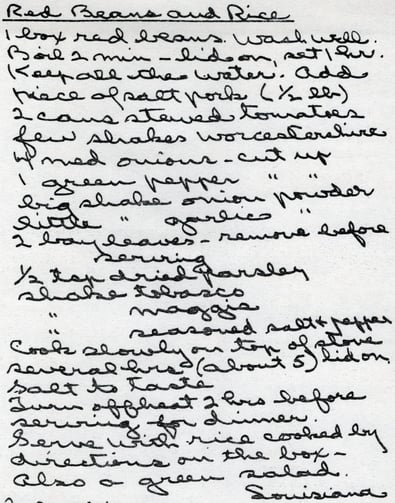 Red Beans and Rice
1 box red beans. Wash well.
Boil 2 min - lid on, set 1 hr.
Keep all the water. Add
piece of salt pork (½ lb)
2 cans stewed tomatoes
few shakes worcestershire
4 med onions - cut up
1 green pepper " "
big shake onion powder
little " garlic "
2 bay leaves - remove before
serving
½ tsp dried parsley
shake tobasco
" maggie
" seasoned salt + pepper
Cook slowly on top of stove
several hrs (about 5) lid on
Salt to taste
Turn off heat 2 hrs before
serving for dinner.
Serve with rice cooked by
directions on the box -
Also a green salad.
Louisiana